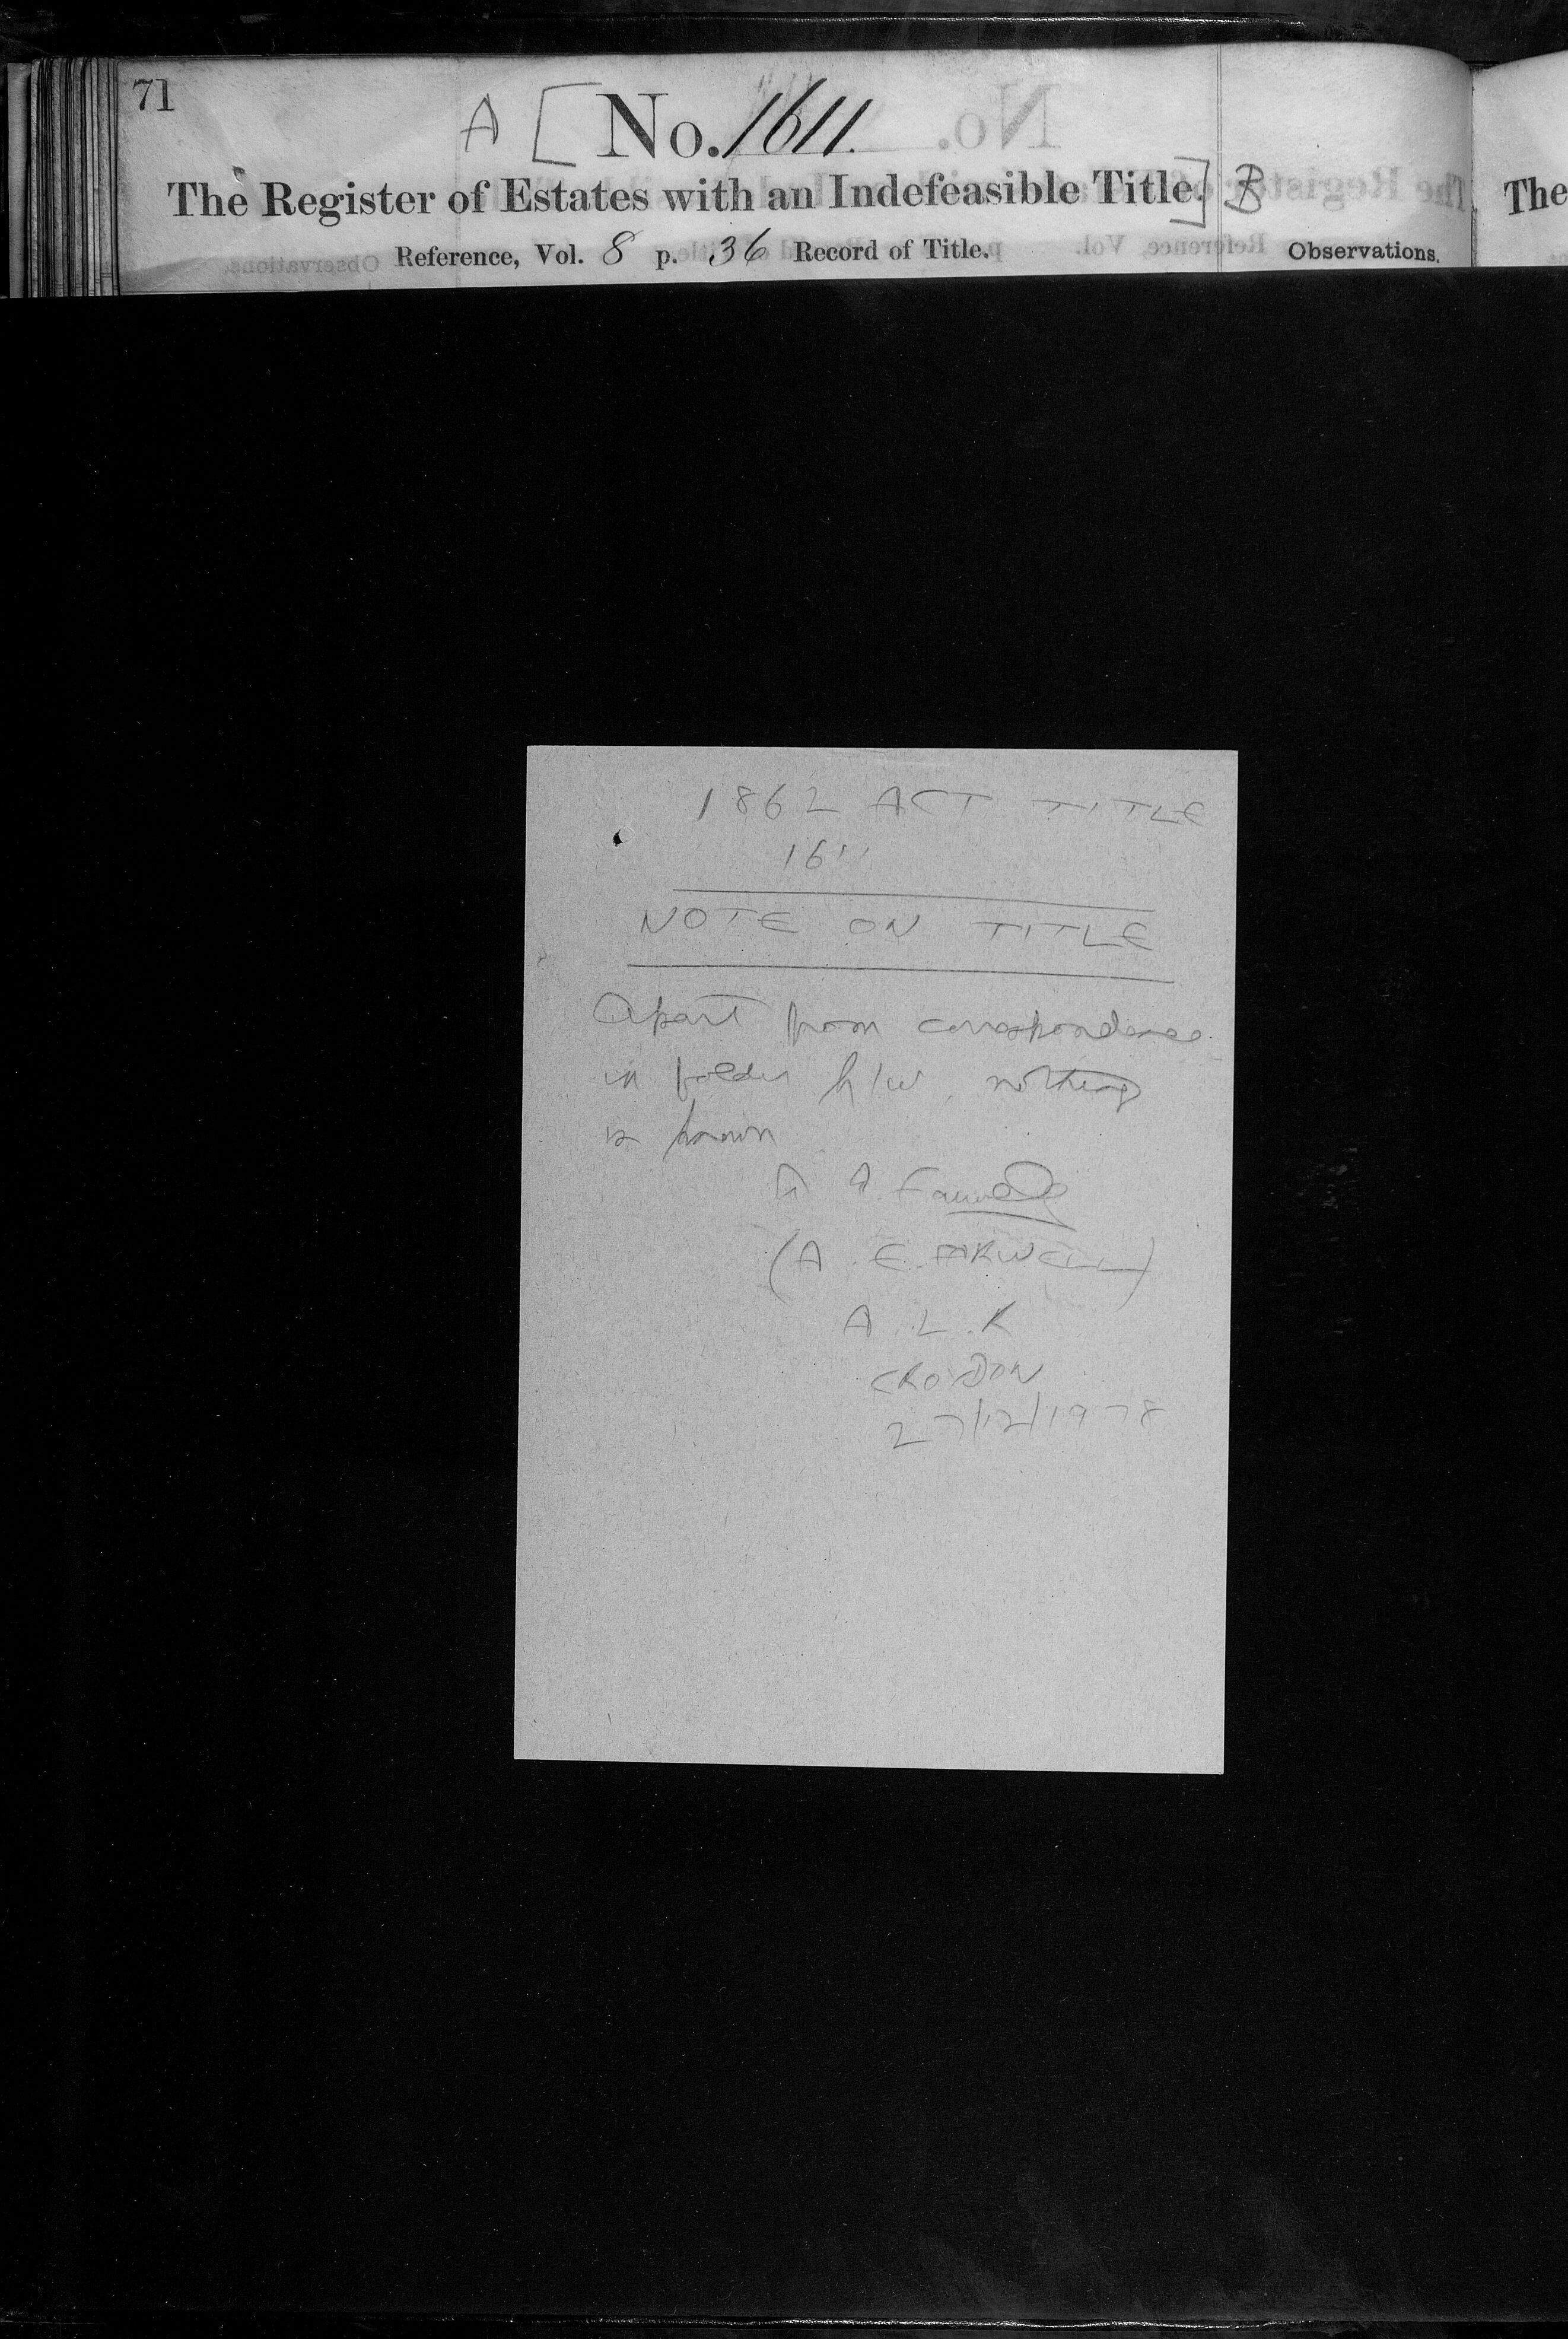 71
A [ No. 1611.
The Register of Estates with an Indefeasible Title. ] B
Reference, Vol. 8 p. 36 Record of Title.
Observations.
The
1862 ACT TITLE
1611
NOTE ON TITLE
Apart from correspondence
in folder h/w, nothing
is known
A. E. Farwell
(A. E. FARWELL)
A. L. R
CROYDON
27/12/1978